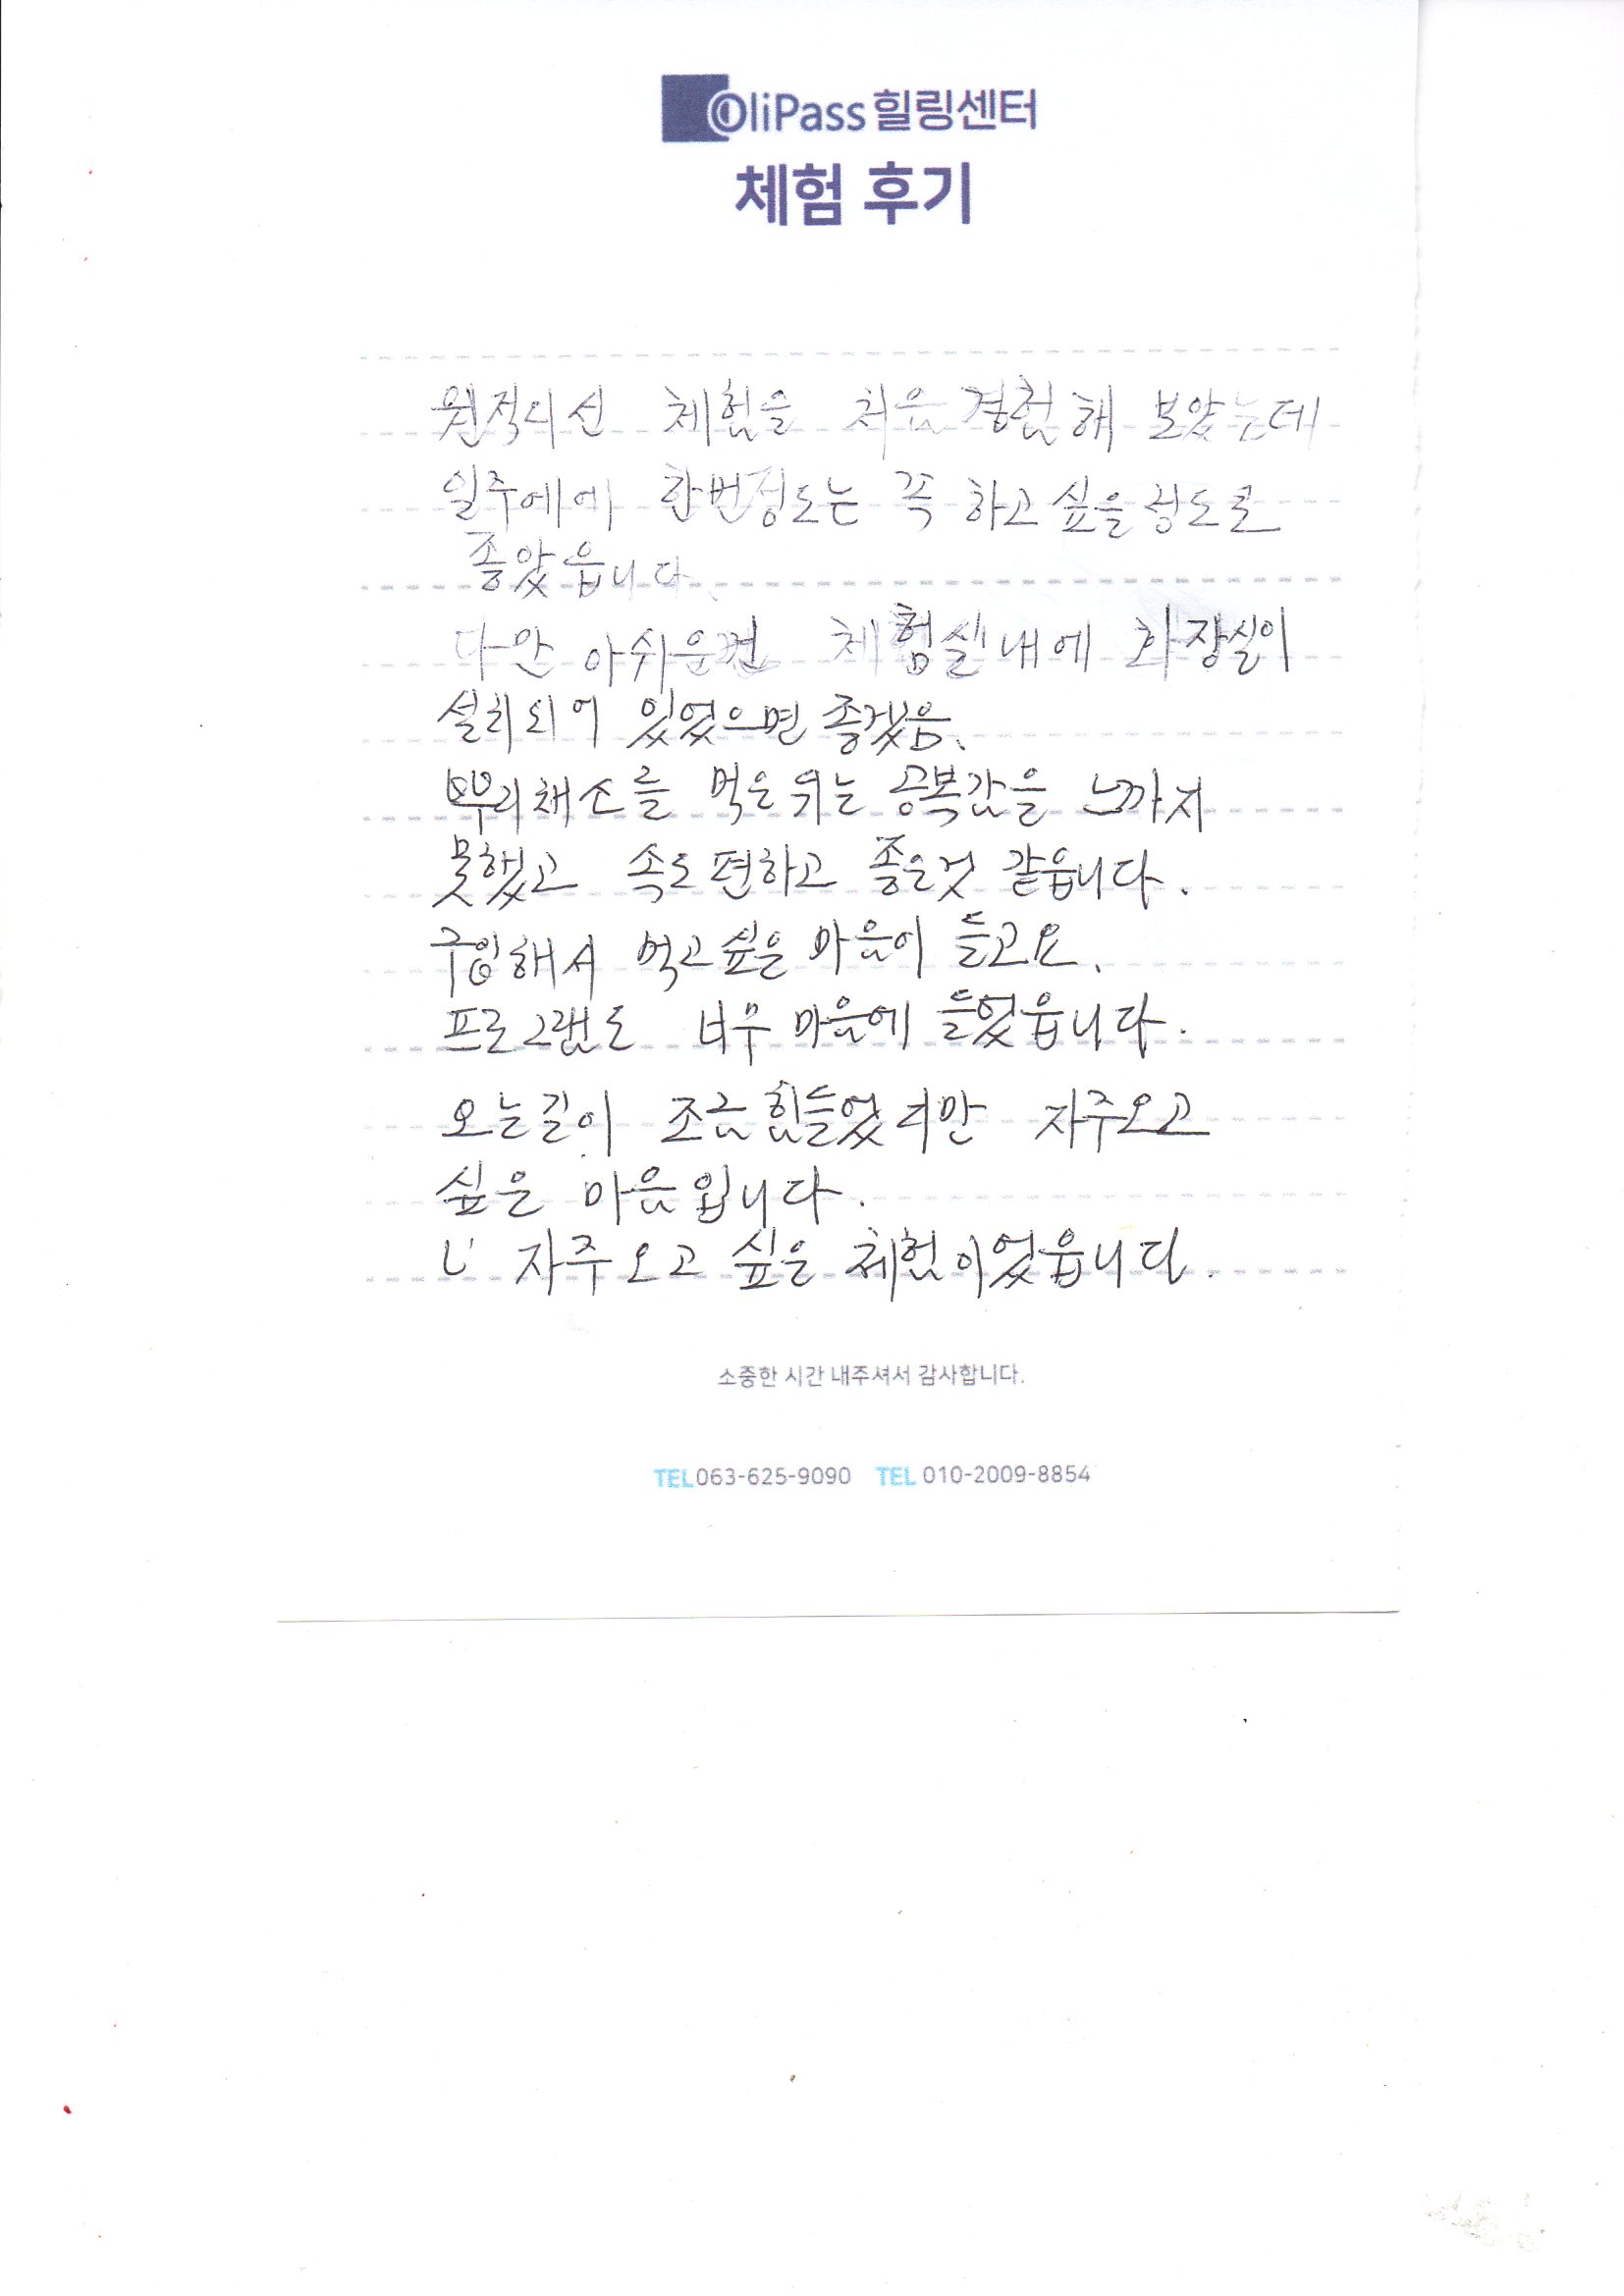 OliPass 힐링센터
체험 후기
원적외선 체험을 처음 경험해 보았는데
일주에에 한번정도는 꼭 하고 싶을 정도로
좋았읍니다
다만 아쉬운건 체험실내에 화장실이
설치되어 있었으면 좋겠음.
뿌리채소를 먹은뒤는 공복감을 느끼지
못했고 속도 편하고 좋은것 같읍니다.
구입해서 먹고싶은 마음이 들고요.
프로그램도 너무 마음에 들었읍니다.
오는길이 조금 힘들었지만 자주오고
싶은 마음입니다.
자주 오고 싶은 체험이었읍니다.
소중한 시간 내주셔서 감사합니다.
TEL 063-625-9090 TEL 010-2009-8854